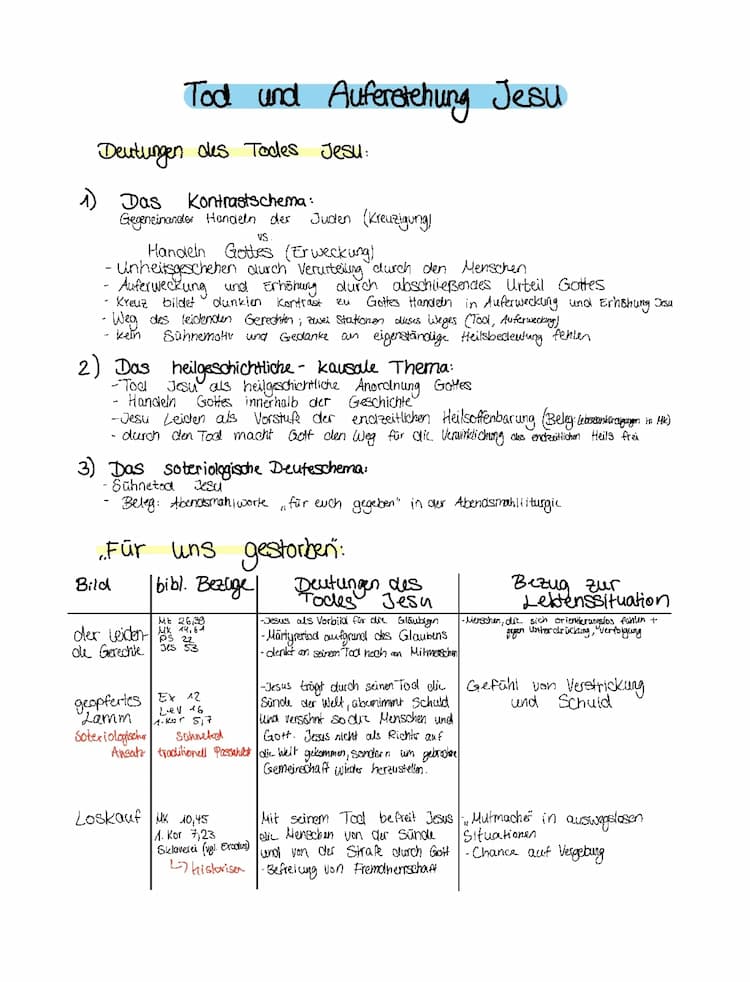 Tod und Auferstehung Jesu
Deutungen des Todes Jesu:
1) Das Kontrastschema:
Gegeneinander Handeln der Juden (Kreuzigung)
vs.
Handeln Gottes (Erweckung)
- Unheilsgeschehen durch Verurteilung durch den Menschen
- Auferweckung und Erhöhung durch abschließendes Urteil Gottes
- Kreuz bildet dunklen Kontrast zu Gottes Handeln in Auferweckung und Erhöhung Jesu
- Weg des leidenden Gerechten; zwei Stationen dieses Weges (Tod, Auferweckung)
- kein Sühnemotiv und Gedanke an eigenständige Heilsbedeutung fehlen
2) Das heilgeschichtliche-kausale Thema:
- Tod Jesu als heilgeschichtliche Anordnung Gottes
- Handeln Gottes innerhalb der Geschichte
- Jesu Leiden als Vorstufe der endzeitlichen Heilsoffenbarung (Beleg: in Mk)
- durch den Tod macht Gott den Weg für die Verwirklichung des endzeitlichen Heils frei
3) Das soteriologische Deuteschema:
- Sühnetod Jesu
- Beleg: Abendmahlworte „für euch gegeben" in der Abendmahlliturgie
„Für uns gestorben":
Bild
bibl. Bezüge
Deutungen des
Todes Jesu
Bezug zur
Lebenssituation
der leiden-
de Gerechte
Mt 26,39
Mk
PS 22
Jes 53
- Jesus als Vorbild für die Gläubigen
- Märtyrertod aufgrund des Glaubens
- denkt an seinen Tod noch an Mitmenschen
- Menschen, die sich orientierungslos fühlen +
gegen Unterdrückung, Verfolgung
geopfertes
Lamm
Soteriologischer
Ansatz
Ex 12
Lev 16
1. Kor 5,7
Sühnetod
traditionell Passahfest
- Jesus trägt durch seinen Tod die
Sünde der Welt, abnimmt Schuld
und versöhnt so die Menschen und
Gott. Jesus nicht als Richter auf
die Welt gekommen, sondern um gebrochene
Gemeinschaft wieder herzustellen.
Gefühl von Verstrickung
und Schuld
Loskauf
Mk 10,45
1. Kor 7,23
Sklaverei (vgl. Exodus)
↳ historisch
Mit seinem Tod befreit Jesus
die Menschen von der Sünde
und von der Strafe durch Gott
- Befreiung von Fremdherrschaft
- „Mutmacher" in auswegslosen
Situationen
- Chance auf Vergebung